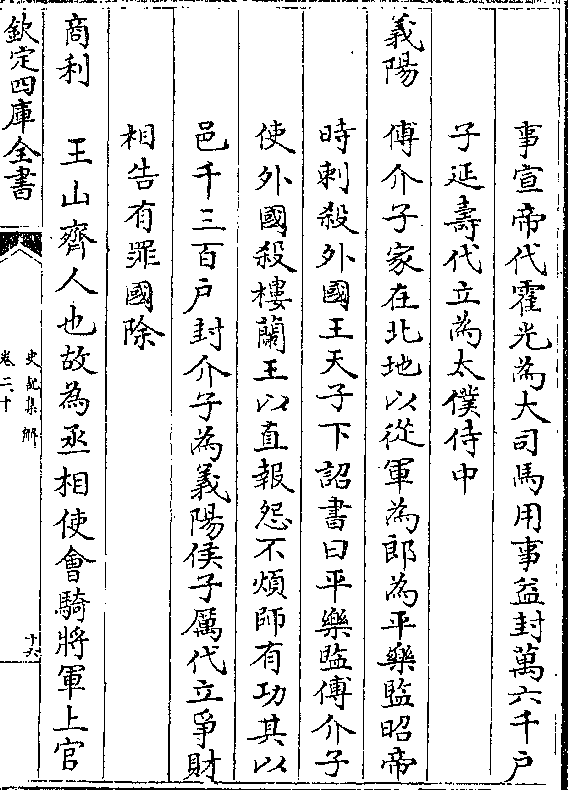 事宣帝代霍光為大司馬用事益封萬六千戶
子延壽代立為太僕侍中
義陽　傅介子家在北地以從軍為郎為平樂監昭帝
時刺殺外國王天子下詔書曰平樂監傅介子
使外國殺樓蘭王以直報怨不煩師有功其以
邑千三百户封介子為義陽侯子厲代立爭財
相告有罪國除
商利　王山齊人也故為丞相使會騎將軍上官
欽定四庫全書
史記集解
卷二十
十六